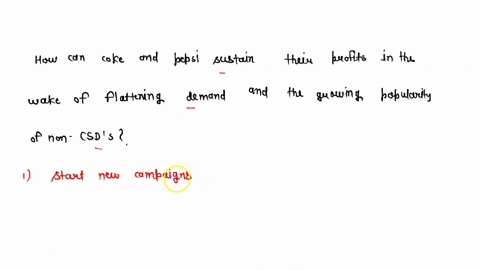 How can coke and pepsi sustain their profits in the
wake of flattening demand and the growing popularity
of non-CSD's?.
1) Start new campaigns.